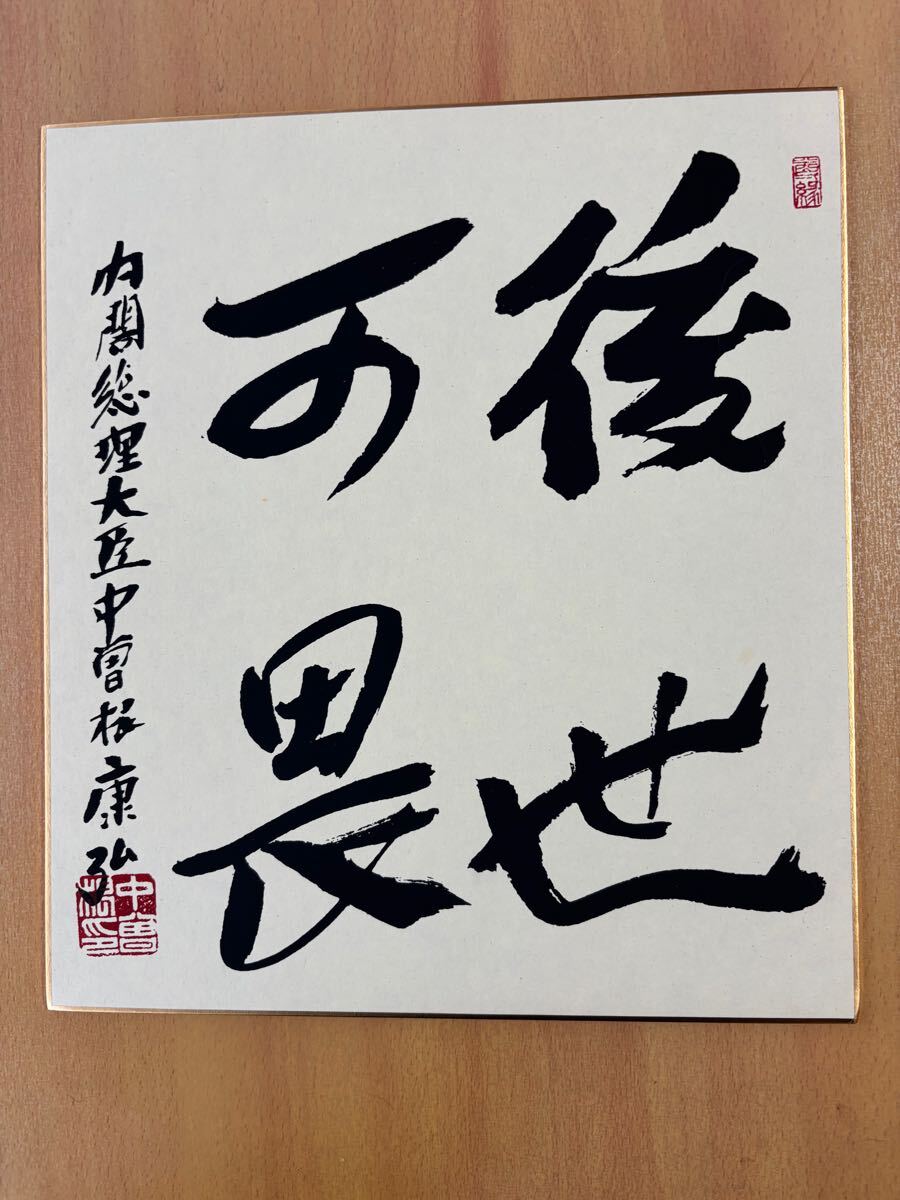 後世
可畏
内閣総理大臣中曽根康弘
中曽根印